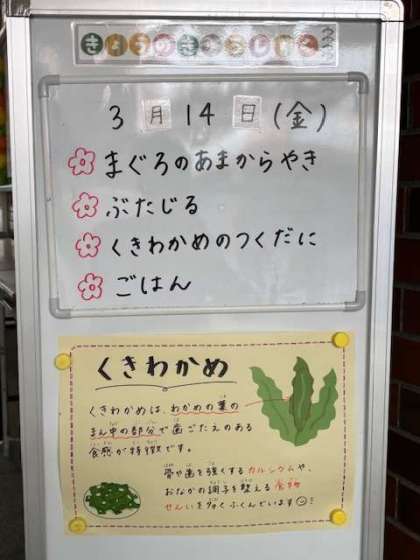 きょうのきゅうしょく
3月14日(金)
まぐろのあまからやき
ぶたじる
くきわかめのつくだに
ごはん
くきわかめ
くきわかめは、わかめの葉の
まん中の部分で歯ごたえのある
食感が特徴です。
骨や歯を強くするカルシウムや、
おなかの調子を整える食物
せんいを多くふくんでいます